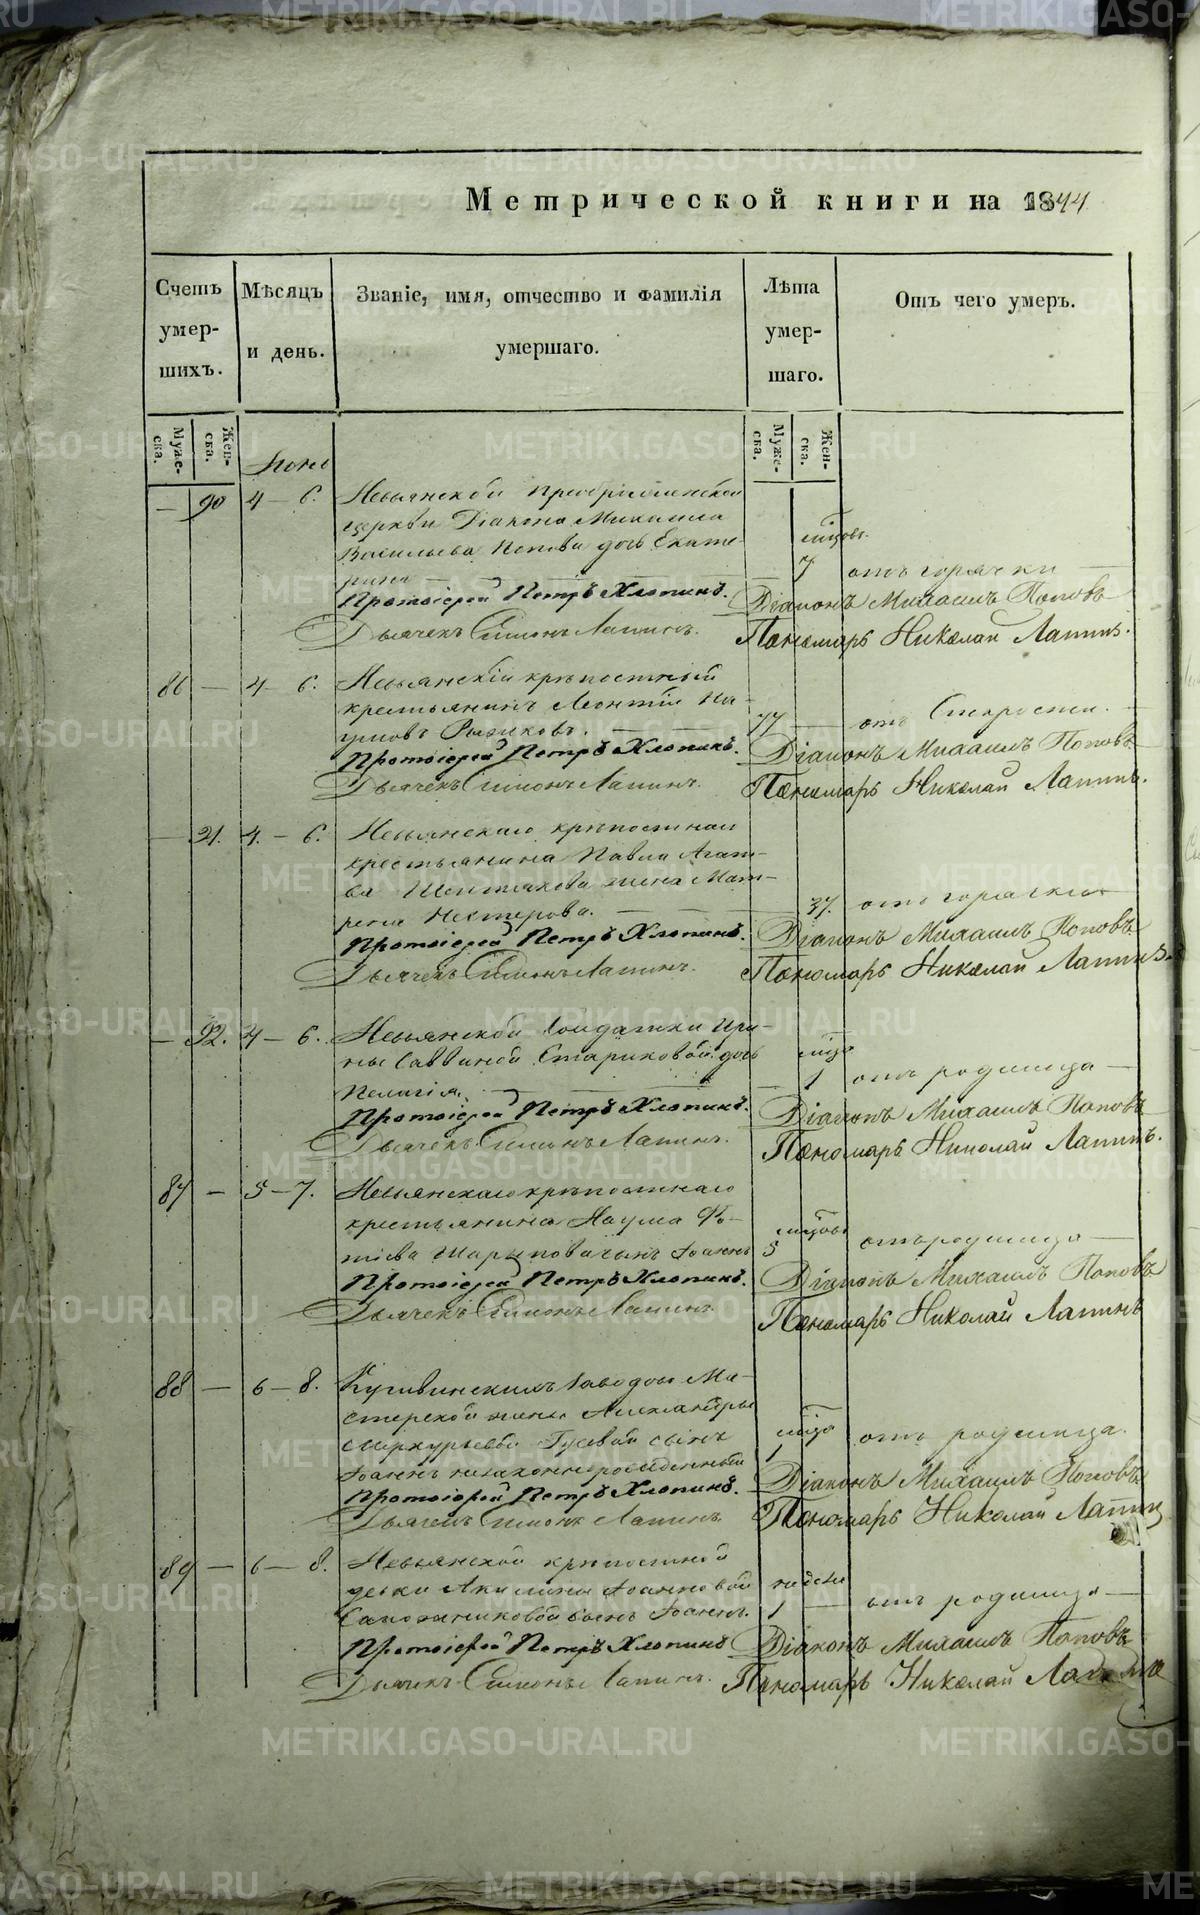 Метрической книги на 1844
Счетъ умер-шихъ.
Мѣсяцъ и день.
Званіе, имя, отчество и фамилія умершаго.
Лѣта умер-шаго.
Отъ чего умеръ.
Муже-ска.
Жен-ска.
Муже-ска.
Жен-ска.
— 90 4 — 6. Невьянской Преображенской
церкви Діакона Михаила
Васильева Попова дочь Екате-
рина — 7 отъ горячки —
Протоіерей Петръ Хлопинъ. Діаконъ Михаилъ Поповъ
Дьячекъ Симонъ Лапинъ. Пономарь Николай Лапинъ.
86 — 4 — 6. Невьянскій крѣпостный
крестьянинъ Леонтій На-
умовъ — 77 — отъ Старости. —
Протоіерей Петръ Хлопинъ. Діаконъ Михаилъ Поповъ
Дьячекъ Симонъ Лапинъ. Пономарь Николай Лапинъ.
— 91. 4. — 6. Невьянскаго крѣпостнаго
крестьянина Павла
жена Мат-
рена Нестерова. — 37. отъ горячки
Протоіерей Петръ Хлопинъ. Діаконъ Михаилъ Поповъ
Дьячекъ Симонъ Лапинъ. Пономарь Николай Лапинъ.
— 92. 4 — 6. Невьянской Солдатки Ири-
ны Саввиной Стариковой дочь
Пелагія. — 1 отъ родимца —
Протоіерей Петръ Хлопинъ. Діаконъ Михаилъ Поповъ
Дьячекъ Симонъ Лапинъ. Пономарь Николай Лапинъ.
87 — 5 — 7. Невьянскаго крѣпостнаго
крестьянина Наума Фо-
тіева сынъ Іоаннъ 5 отъ родимца —
Протоіерей Петръ Хлопинъ. Діаконъ Михаилъ Поповъ
Дьячекъ Симонъ Лапинъ. Пономарь Николай Лапинъ
88 — 6 — 8. заводовъ Ма-
стерской жены Александры
Меркурьевой Гусевой сынъ
Іоаннъ незаконнорожденный 1 отъ родимца.
Протоіерей Петръ Хлопинъ. Діаконъ Михаилъ Поповъ
Дьячекъ Симонъ Лапинъ. Пономарь Николай Лапинъ
89 — 6 — 8. Невьянской крѣпостной
девки Акилины Іоанновой
Сапожниковой сынъ Іоаннъ. 1 — отъ родимца —
Протоіерей Петръ Хлопинъ Діаконъ Михаилъ Поповъ
Дьячекъ Симонъ Лапинъ. Пономарь Николай Лапинъ
METRIKI.GASO-URAL.RU